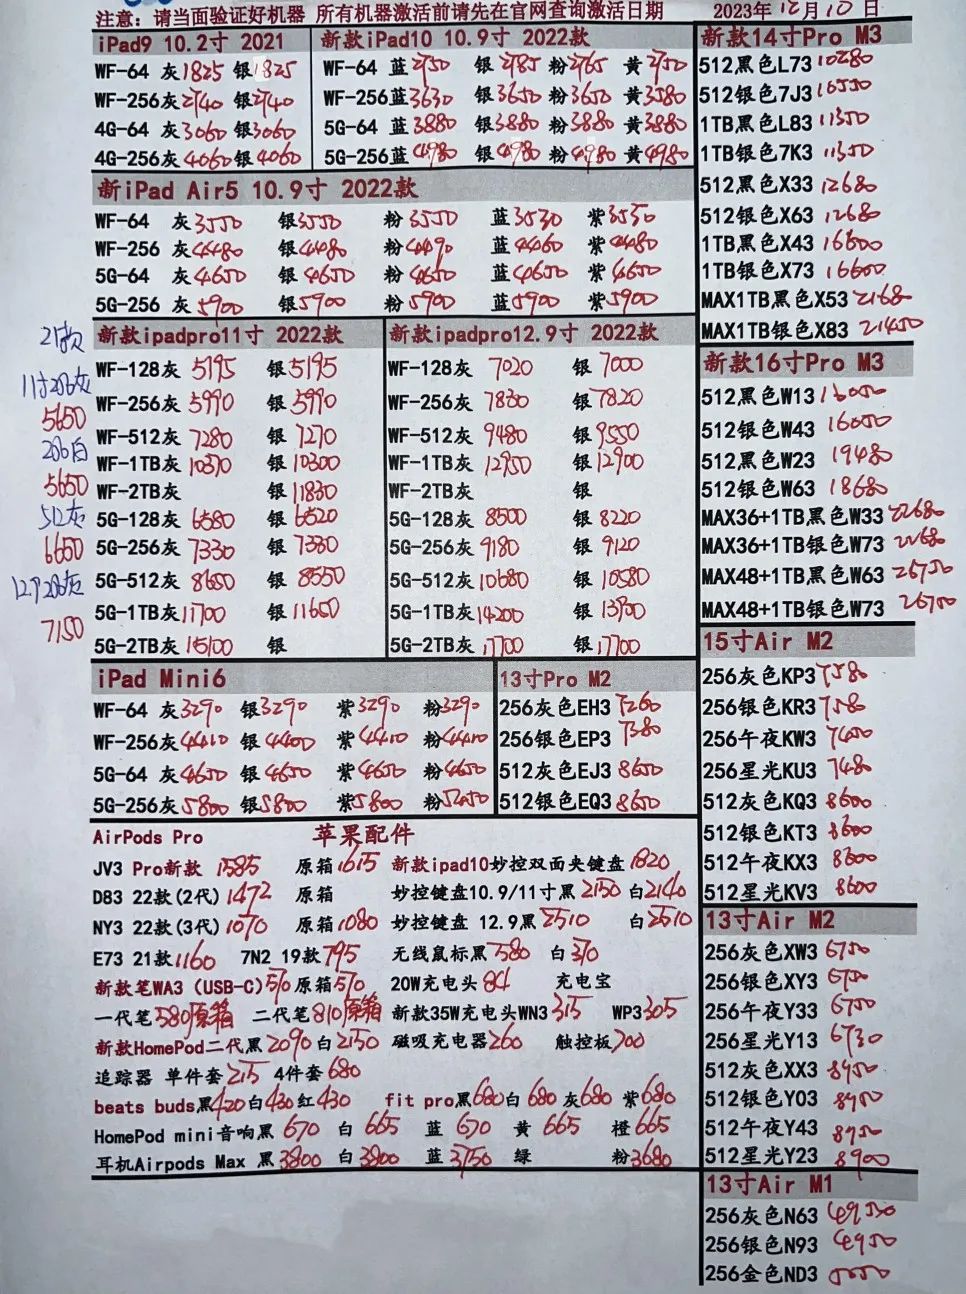 注意：请当面验证好机器 所有机器激活前请先在官网查询激活日期 2023年12月10日
iPad9 10.2寸 2021
WF-64 灰1825 银1825
WF-256灰2140 银2140
4G-64 灰3060 银3060
4G-256灰4060 银4060
新款iPad10 10.9寸 2022款
WF-64 蓝2750 银2785 粉2765 黄2750
WF-256蓝3630 银3650 粉3650 黄3580
5G-64 蓝3880 银3880 粉3880 黄3880
5G-256蓝4980 银4980 粉4980 黄4980
新iPad Air5 10.9寸 2022款
WF-64 灰3550 银3550 粉3550 蓝3530 紫3550
WF-256 灰4480 银4480 粉4490 蓝4460 紫4480
5G-64 灰4650 银4650 粉4650 蓝4650 紫4650
5G-256 灰5900 银5900 粉5900 蓝5900 紫5900
21款
11寸256灰
5650
256白
5650
512灰
6650
12.9 256灰
7150
新款ipadpro11寸 2022款
WF-128灰 5195 银5195
WF-256灰 5990 银5990
WF-512灰 7280 银7270
WF-1TB灰 10370 银10300
WF-2TB灰 银11830
5G-128灰 6580 银6520
5G-256灰 7330 银7330
5G-512灰 8650 银8550
5G-1TB灰11700 银11650
5G-2TB灰 15100 银
新款ipadpro12.9寸 2022款
WF-128灰 7020 银7000
WF-256灰 7830 银7820
WF-512灰 9480 银9550
WF-1TB灰 12950 银12900
WF-2TB灰 银
5G-128灰 8500 银8220
5G-256灰 9180 银9120
5G-512灰10680 银10580
5G-1TB灰14200 银13900
5G-2TB灰 17700 银17700
iPad Mini6
WF-64 灰3290 银3290 紫3290 粉3290
WF-256灰4410 银4400 紫4410 粉4410
5G-64 灰4650 银4650 紫4650 粉4650
5G-256灰5800 银5800 紫5800 粉5450
13寸Pro M2
256灰色EH3 7260
256银色EP3 7380
512灰色EJ3 8650
512银色EQ3 8650
AirPods Pro 苹果配件
JV3 Pro新款 1585 原箱1615 新款ipad10妙控双面夹键盘1820
D83 22款(2代)1472 原箱 妙控键盘10.9/11寸黑2150 白2140
NY3 22款(3代)1070 原箱1080 妙控键盘 12.9黑2510 白2510
E73 21款1160 7N2 19款795 无线鼠标黑580 白370
新款笔WA3 (USB-C)510原箱510 20W充电头84 充电宝
一代笔580原箱 二代笔810原箱 新款35W充电头WN3 315 WP3 305
新款HomePod二代黑2090白2150 磁吸充电器260 触控板700
追踪器 单件套215 4件套680
beats buds黑420白430红430 fit pro黑680白680灰680 紫680
HomePod mini音响黑 670 白 665 蓝 670 黄 665 橙665
耳机Airpods Max 黑3800 白3800 蓝3750 绿 粉3680
新款14寸Pro M3
512黑色L73 10280
512银色7J3 10550
1TB黑色L83 11350
1TB银色7K3 11350
512黑色X33 12680
512银色X63 12680
1TB黑色X43 16600
1TB银色X73 16600
MAX1TB黑色X53 21680
MAX1TB银色X83 21450
新款16寸Pro M3
512黑色W13 16050
512银色W43 16050
512黑色W23 19480
512银色W63 18680
MAX36+1TB黑色W33 22680
MAX36+1TB银色W73 22680
MAX48+1TB黑色W63 26750
MAX48+1TB银色W73 26750
15寸Air M2
256灰色KP3 7580
256银色KR3 7580
256午夜KW3 7450
256星光KU3 7480
512灰色KQ3 8600
512银色KT3 8600
512午夜KX3 8600
512星光KV3 8600
13寸Air M2
256灰色XW3 6750
256银色XY3 6700
256午夜Y33 6750
256星光Y13 6730
512灰色XX3 8950
512银色Y03 8950
512午夜Y43 8950
512星光Y23 8900
13寸Air M1
256灰色N63 4950
256银色N93 4950
256金色ND3 5050